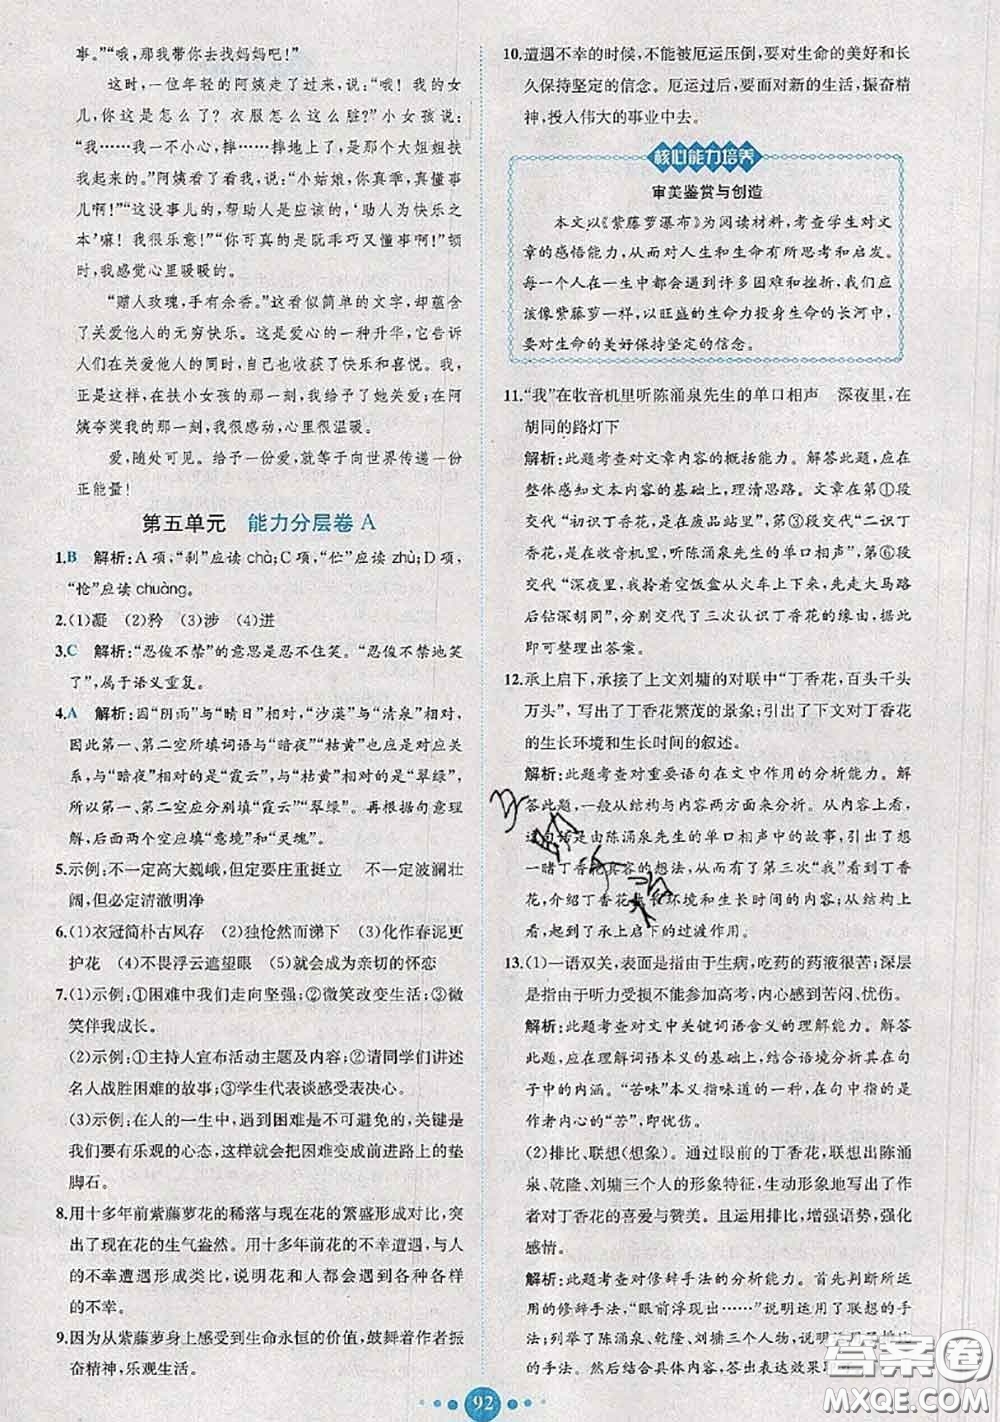 事。”“哦，那我带你去找妈妈吧！”
这时，一位年轻的阿姨走了过来，说：“哦！我的女
儿，你这是怎么了？衣服怎么这么脏？”小女孩说：
“我……我一不小心，摔……摔地上了，是那个大姐姐扶
我起来的。”阿姨看了看我，说：“小姑娘，你真乖，真懂事
儿啊！”“这没事儿的，帮助人是应该的，‘助人为快乐之
本’嘛！我很乐意！”“你可真的是既手巧又懂事啊！”顿
时，我感觉心里暖暖的。
“赠人玫瑰，手有余香。”这看似简单的文字，却蕴含
了关爱他人的无穷快乐。这是爱心的一种升华，它告诉
人们在关爱他人的同时，自己也收获了快乐和喜悦。我，
正是这样，在扶小女孩的那一刻，我给予了她关爱；在阿
姨夸奖我的那一刻，我很感动，心里很温暖。
爱，随处可见。给予一份爱，就等于向世界传递一份
正能量！
第五单元　能力分层卷 A
1.B　解析：A项，“刹”应读 chà；C项，“伫”应读 zhù；D项，
“怆”应读 chuàng。
2.(1)凝　(2)矜　(3)涉　(4)迸
3.C　解析：“忍俊不禁”的意思是忍不住笑。“忍俊不禁地笑
了”，属于语义重复。
4.A　解析：因“阴雨”与“晴日”相对，“沙漠”与“清泉”相对，
因此第一、第二空所填词语与“暗夜”“枯黄”也是对应关
系，与“暗夜”相对的是“霞云”，与“枯黄”相对的是“翠绿”，
所以第一、第二空应分别填“霞云”“翠绿”。再根据句意理
解，后面两个空应填“意境”和“灵魂”。
5.示例：不一定高大巍峨，但一定要庄重挺立　不一定波澜壮
阔，但必定清澈明净
6.(1)衣冠简朴古风存　(2)独怆然而涕下　(3)化作春泥更
护花　(4)不畏浮云遮望眼　(5)就会成为亲切的怀恋
7.(1)示例：①困难中我们走向坚强；②微笑改变生活；③微
笑伴我成长。
(2)示例：①主持人宣布活动主题及内容；②请同学们讲述
名人战胜困难的故事；③学生代表谈感受表决心。
(3)示例：在人的一生中，遇到困难是不可避免的，关键是
我们要有乐观的心态，这样就会将困难变成前进路上的垫
脚石。
8.用十多年前紫藤萝花的稀落与现在花的繁盛形成对比，突
出了现在花的生气盎然。用十多年前花的不幸遭遇，与人
的不幸遭遇形成类比，说明花和人都会遇到各种各样
的不幸。
9.因为从紫藤萝身上感受到生命永恒的价值，鼓舞着作者振
奋精神，乐观生活。
10.遭遇不幸的时候，不能被厄运压倒，要对生命的美好和长
久保持坚定的信念。厄运过后，要面对新的生活，振奋精
神，投入伟大的事业中去。
核心能力培养
审美鉴赏与创造
本文以《紫藤萝瀑布》为阅读材料，考查学生对文
章的感悟能力，从而对人生和生命有所思考和启发。
每一个人在一生中都会遇到许多困难和挫折，我们应
该像紫藤萝一样，以旺盛的生命力投身生命的长河中，
要对生命的美好保持坚定的信念。
11.“我”在收音机里听陈涌泉先生的单口相声　深夜里，在
胡同的路灯下
解析：此题考查对文章内容的概括能力。解答此题，应在
整体感知文本内容的基础上，理清思路。文章在第①段
交代“初识丁香花，是在废品站里”，第③段交代“二识丁
香花，是在收音机里，听陈涌泉先生的单口相声”，第⑥段
交代“深夜里，我拎着空饭盒从火车上下来，先走大马路
后钻深胡同”，分别交代了三次认识丁香花的缘由，由此
即可整理出答案。
12.承上启下，承接了上文刘墉的对联中“丁香花，百头千头
万头”，写出了丁香花繁茂的景象；引出了下文对丁香花
的生长环境和生长时间的叙述。
解析：此题考查对重要语句在文中作用的分析能力。解
答此题，一般从结构与内容两方面来分析。从内容上看，
这句话是由陈涌泉先生的单口相声中的故事，引出了想
一睹丁香花真容的想法，从而写了第三次“我”看到丁香
花，介绍丁香花生长环境和生长时间的内容；从结构上
看，起到了承上启下的过渡作用。
13.(1)一语双关，表面是指由于生病，吃药的药液很苦；深层
是指由于听力受损不能参加高考，内心感到苦闷、忧伤。
解析：此题考查对文中关键词语含义的理解能力。解答
此题，应在理解词语本义的基础上，结合语境分析其在句
子中的内涵。“苦味”本义指味道的一种，在句中指的是
作者内心的“苦”，即忧伤。
(2)排比、联想(想象)。通过眼前的丁香花，联想出陈涌
泉、乾隆、刘墉三个人的形象特征，生动形象地写出了作者
对丁香花的喜爱与赞美。且运用排比，增强语势，强化
感情。
解析：此题考查对修辞手法的分析能力。首先判断所运
用的修辞手法，“眼前浮现出……”说明运用了联想的手
法；列举了陈涌泉、乾隆、刘墉三个人物，说明
的手法。然后结合具体内容，答出表达效果
92
答案圈
MXQE.COM